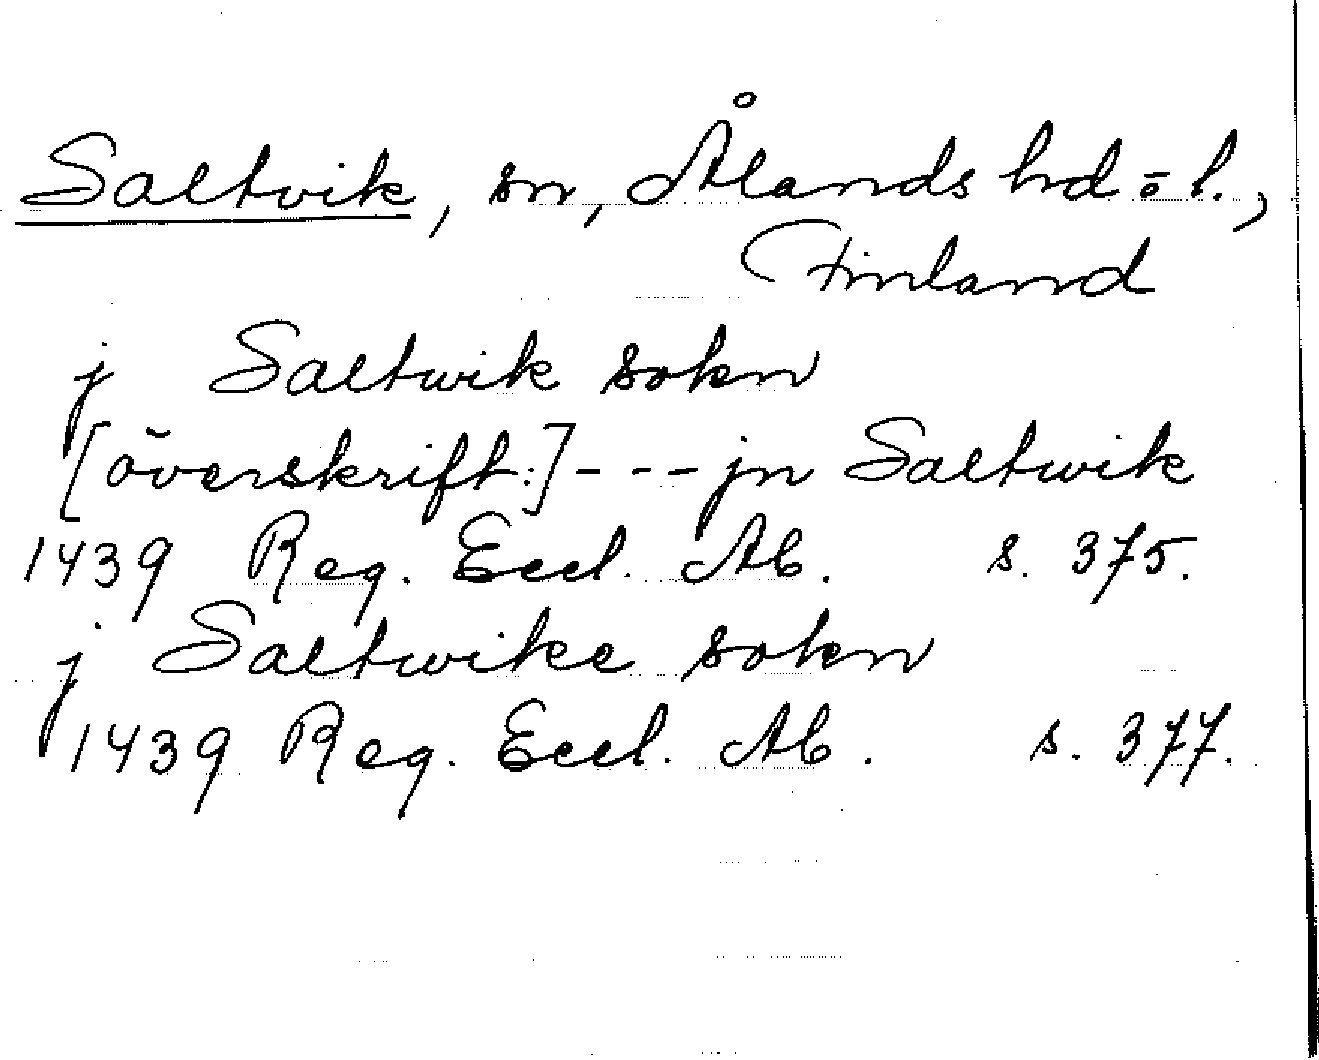 Saltvik, sn, Ålands hd ō l.,
Finland
j Saltwik sokn
[överskrift:] - - - jn Saltwik
1439 Reg. Eccl. Ab. s. 375.
j Saltwike sokn
1439 Reg. Eccl. Ab. s. 377.